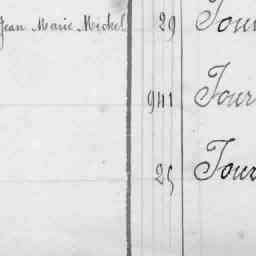 Jean Marie Michel 29 Tour
941 Tour
25 Tour